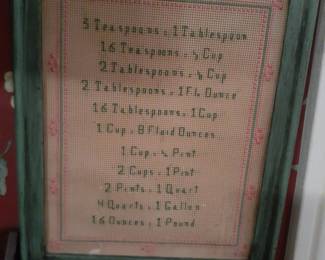 3 Teaspoons = 1 Tablespoon
16 Teaspoons = ⅓ Cup
2 Tablespoons = ⅛ Cup
2 Tablespoons = 1 Fl. Ounce
16 Tablespoons = 1 Cup
1 Cup = 8 Fluid Ounces
1 Cup = ½ Pint
2 Cups = 1 Pint
2 Pints = 1 Quart
4 Quarts = 1 Gallon
16 Ounces = 1 Pound